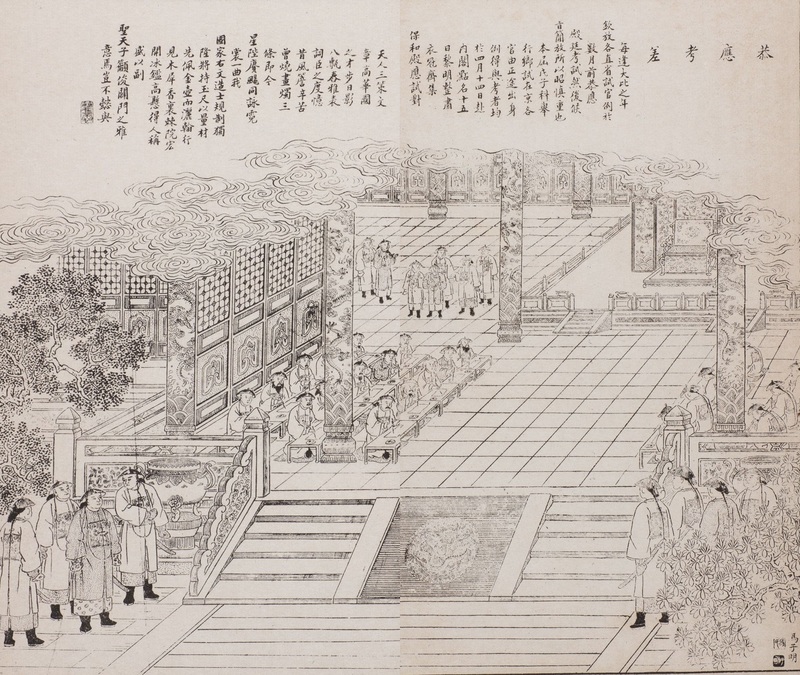 恭應考差
每逢大比之年
欽放各直省試官例於
數月前恭應
殿廷考試然後候
旨簡放所以昭慎重也
本屆戊子科舉
行鄉試在京各
官由正途出身
例得與考者均
於四月十四日赴
內閣點名十五
日黎明整肅
衣冠齊集
保和殿應試對
天人三策文
章高華國
之才步日影
八甎春雅表
詞臣之度憶
昔風簷辛苦
曾燒畫燭三
條即今
星陛賡颺同詠霓
裳一曲我
國家右文造士規制獨
隆將持玉尺以量材
先佩金壺而灑翰行
見木犀香裏棘院宏
開冰鑑高懸得人稱
盛以副
聖天子籲俊闢門之雅
意焉豈不懿歟
馬子明